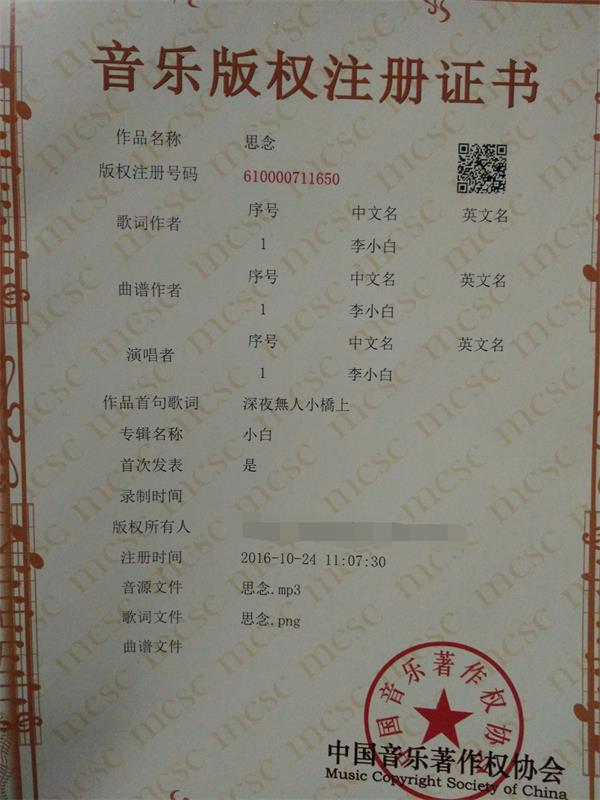 音乐版权注册证书
作品名称 思念
版权注册号码 610000711650
歌词作者 序号 中文名 英文名
1 李小白
曲谱作者 序号 中文名 英文名
1 李小白
演唱者 序号 中文名 英文名
1 李小白
作品首句歌词 深夜無人小橋上
专辑名称 小白
首次发表 是
录制时间
版权所有人
注册时间 2016-10-24 11:07:30
音源文件 思念.mp3
歌词文件 思念.png
曲谱文件
中国音乐著作权协会
中国音乐著作权协会
Music Copyright Society of China
mcsc